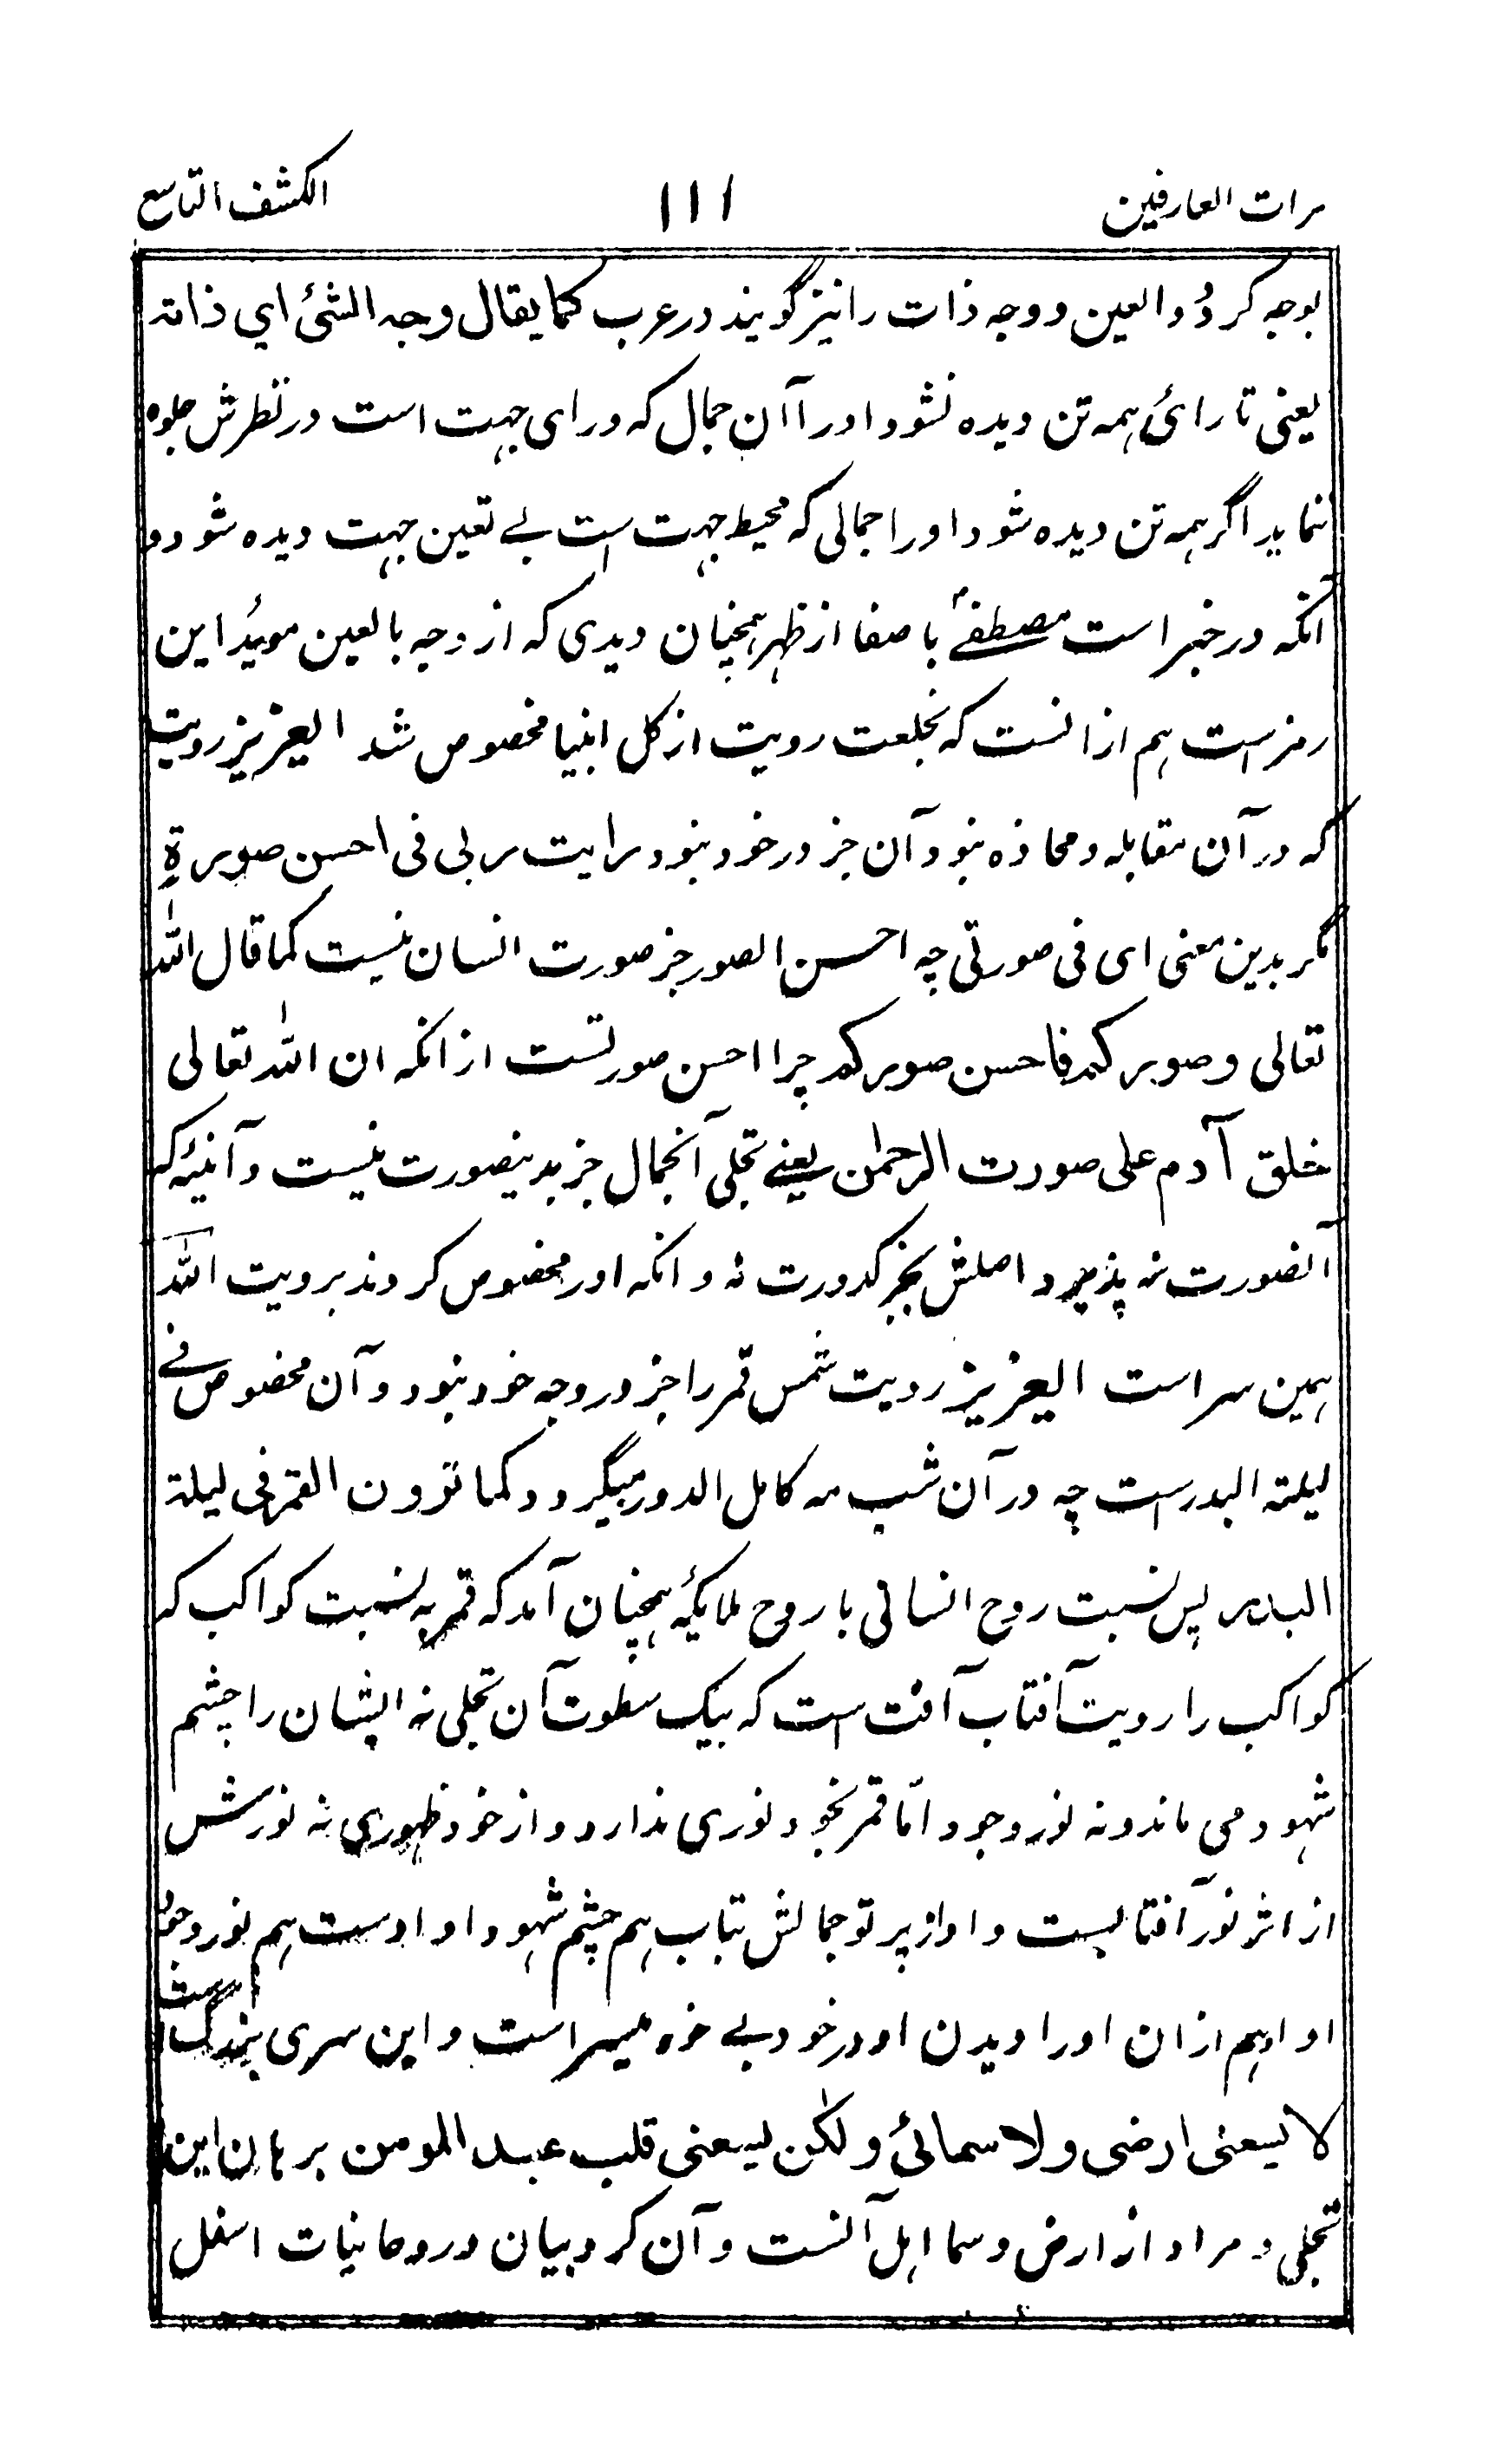 مرات العارفین ۱۱۱ الکشف التاسع
بوجه کردُ والعین ووجه ذات را نیز گویند در عرب کما یقال وجه الشئ ای ذاته
یعنی تا رائی همه تن دیده نشود اورا آن جمال که ورای جهت است در نظرش جلوه
ننماید اگر همه تن دیده شود اورا جمالی که محیط جهت است بے تعین جهت دیده شود و
آنکه در خبر است مصطفےٰ با صفا از ظهر همچنان دیدی که از وجه بالعین موئید این
رمز است هم ازانست که بخلعت رویت از کل انبیا مخصوص شد العزیز رویت
که در آن مقابله و محاذه نبود آن جز در خود نبود رایت ربی فی احسن صورةٍ
مگر بدین معنی ای فی صورتی چه احسن الصور جز صورت انسان نیست کما قال الله
تعالی وصورکم فاحسن صورکم چرا احسن صورتست ازانکه ان الله تعالی
خلق آدم علی صورت الرحمٰن یعنے تجلی آنجمال جز بدینصورت نیست و آئینهٔ که
آنصورت نه پذیرد اصلش بجز کدورت نه و آنکه اورا مخصوص کردند برویت الله
همین سر است العزیز رویت شمس قمر را جز در وجه خود نبود و آن مخصوص فے
لیلته البدر است چه در آن شب مه کامل الدور میگردد کما ترون القمر فی لیلة
البدر پس نسبت روح انسانی با روح ملایکهٔ همچنان آمد که قمر به نسبت کواکب که
کواکب را رویت آفتاب آفت است که بیک سطوت آن تجلی نه ایشان را چشم
شهود می ماند و نه نور وجود امّا قمر بخود نوری ندارد و از خود ظهوری نه نورش
از اثر نور آفتابست و او از پرتو جمالش بتاب هم چشم شهود او اوست هم نور وجود
او او هم ازان اورا دیدن او در خود بے خود میسر است و این سری بزرگ است
لا یسعنی ارضی ولا سمائی ولٰکن یسعنی قلب عبد المومن برهان این
تجلی و مراد از ارض و سما اهل آنست و آن کروبیان و روحانیات اسفل